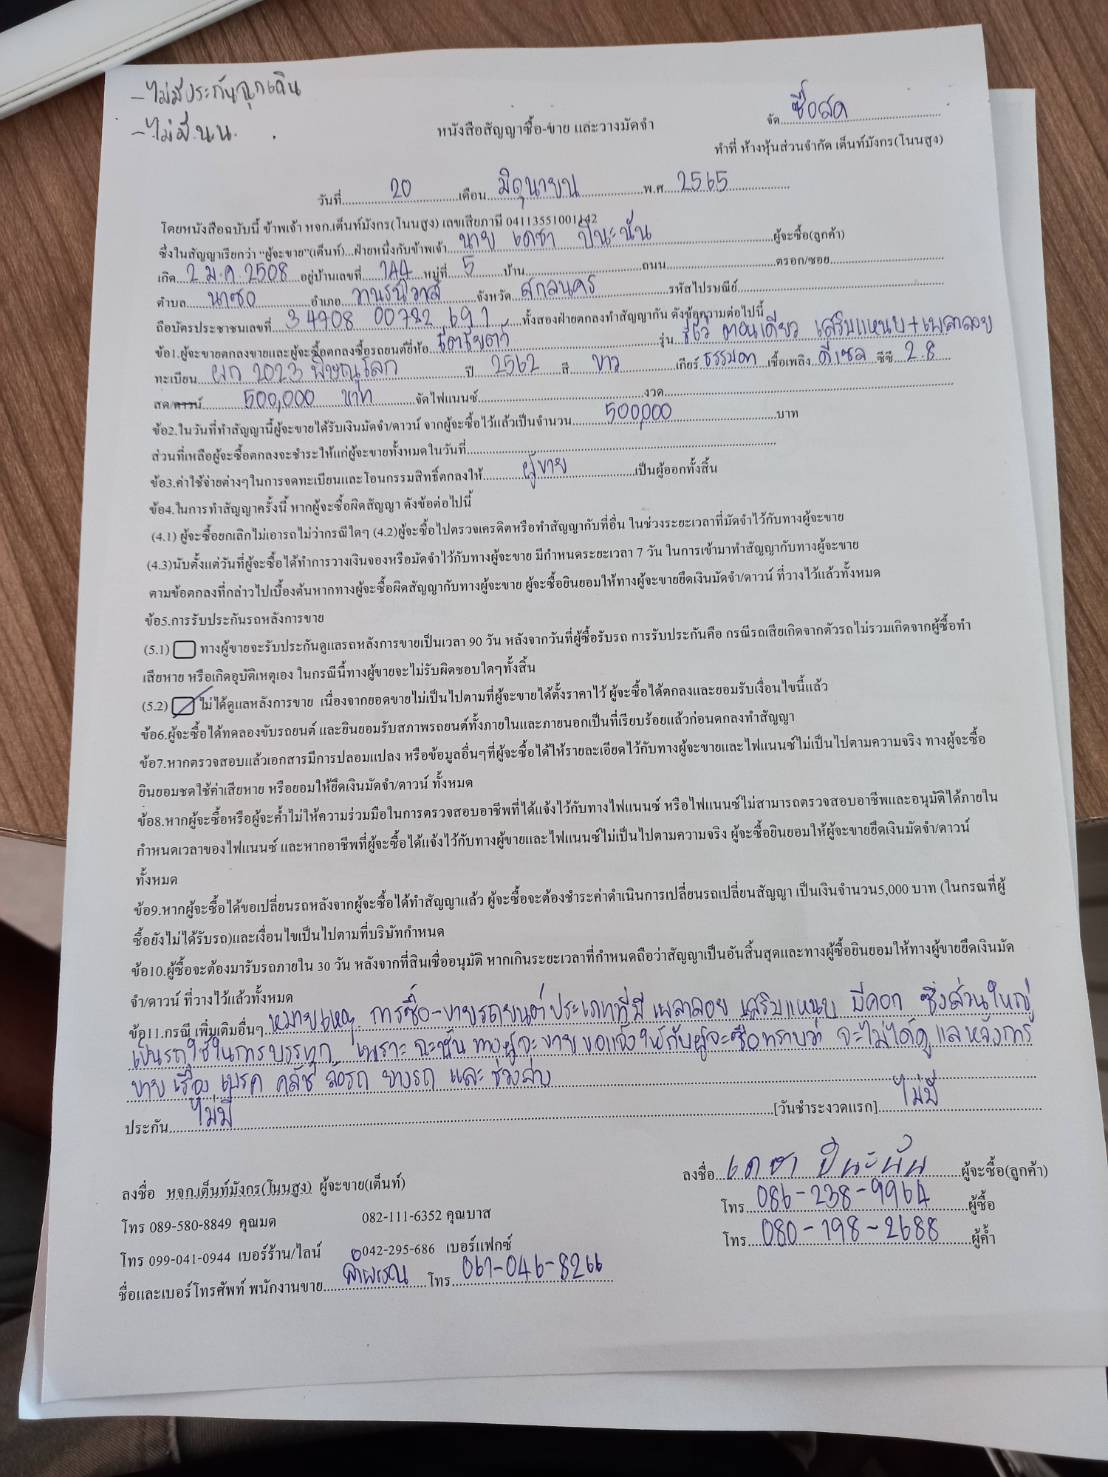 - ไม่มีประกันฉุกเฉิน
- ไม่มี น.น.
จัด ซื้อสด
หนังสือสัญญาซื้อ-ขาย และวางมัดจำ
ทำที่ ห้างหุ้นส่วนจำกัด เต็นท์มังกร(โนนสูง)
วันที่ 20 เดือน มิถุนายน พ.ศ 2565
โดยหนังสือฉบับนี้ ข้าพเจ้า หจก.เต็นท์มังกร(โนนสูง) เลขเสียภาษี 0411355100142
ซึ่งในสัญญาเรียกว่า "ผู้จะขาย"(เต็นท์)...ฝ่ายหนึ่งกับข้าพเจ้า นาย เดชา ปินะนัน ผู้จะซื้อ(ลูกค้า)
เกิด 2 ม.ค. 2508 อยู่บ้านเลขที่ 144 หมู่ที่ 5 บ้าน ถนน ตรอก/ซอย
ตำบล นาซอ อำเภอ วานรนิวาส จังหวัด สกลนคร รหัสไปรษณีย์
ถือบัตรประชาชนเลขที่ 3 4708 00722 69 1 ทั้งสองฝ่ายตกลงทำสัญญากัน ดังข้อความต่อไปนี้
ข้อ1.ผู้จะขายตกลงขายและผู้จะซื้อตกลงซื้อรถยนต์ยี่ห้อ โตโยต้า รุ่น รีโว่ ตอนเดียว เสริมแหนบ+เพลาลอย
ทะเบียน ผก 2023 พิษณุโลก ปี 2562 สี ขาว เกียร์ ธรรมดา เชื้อเพลิง ดีเซล ซีซี 2.8
สด/ดาวน์ 500,000 บาท จัดไฟแนนซ์ งวด
ข้อ2.ในวันที่ทำสัญญานี้ผู้จะขายได้รับเงินมัดจำ/ดาวน์ จากผู้จะซื้อไว้แล้วเป็นจำนวน 500,000 บาท
ส่วนที่เหลือผู้จะซื้อตกลงจะชำระให้แก่ผู้จะขายทั้งหมดในวันที่
ข้อ3.ค่าใช้จ่ายต่างๆในการจดทะเบียนและโอนกรรมสิทธิ์ตกลงให้ ผู้ขาย เป็นผู้ออกทั้งสิ้น
ข้อ4.ในการทำสัญญาครั้งนี้ หากผู้จะซื้อผิดสัญญา ดังข้อต่อไปนี้
(4.1) ผู้จะซื้อยกเลิกไม่เอารถไม่ว่ากรณีใดๆ (4.2)ผู้จะซื้อไปตรวจเครดิตหรือทำสัญญากับที่อื่น ในช่วงระยะเวลาที่มัดจำไว้กับทางผู้จะขาย
(4.3)นับตั้งแต่วันที่ผู้จะซื้อได้ทำการวางเงินจองหรือมัดจำไว้กับทางผู้จะขาย มีกำหนดระยะเวลา 7 วัน ในการเข้ามาทำสัญญากับทางผู้จะขาย
ตามข้อตกลงที่กล่าวไปเบื้องต้นหากทางผู้จะซื้อผิดสัญญากับทางผู้จะขาย ผู้จะซื้อยินยอมให้ทางผู้จะขายยึดเงินมัดจำ/ดาวน์ ที่วางไว้แล้วทั้งหมด
ข้อ5.การรับประกันรถหลังการขาย
(5.1) ทางผู้ขายจะรับประกันดูแลรถหลังการขายเป็นเวลา 90 วัน หลังจากวันที่ผู้ซื้อรับรถ การรับประกันคือ กรณีรถเสียเกิดจากตัวรถไม่รวมเกิดจากผู้ซื้อทำ
เสียหาย หรือเกิดอุบัติเหตุเอง ในกรณีนี้ทางผู้ขายจะไม่รับผิดชอบใดๆทั้งสิ้น
(5.2) ไม่ได้ดูแลหลังการขาย เนื่องจากยอดขายไม่เป็นไปตามที่ผู้จะขายได้ตั้งราคาไว้ ผู้จะซื้อได้ตกลงและยอมรับเงื่อนไขนี้แล้ว
ข้อ6.ผู้จะซื้อได้ทดลองขับรถยนต์ และยินยอมรับสภาพรถยนต์ทั้งภายในและภายนอกเป็นที่เรียบร้อยแล้วก่อนตกลงทำสัญญา
ข้อ7.หากตรวจสอบแล้วเอกสารมีการปลอมแปลง หรือข้อมูลอื่นๆที่ผู้จะซื้อได้ให้รายละเอียดไว้กับทางผู้จะขายและไฟแนนซ์ไม่เป็นไปตามความจริง ทางผู้จะซื้อ
ยินยอมชดใช้ค่าเสียหาย หรือยอมให้ยึดเงินมัดจำ/ดาวน์ ทั้งหมด
ข้อ8.หากผู้จะซื้อหรือผู้จะค้ำไม่ให้ความร่วมมือในการตรวจสอบอาชีพที่ได้แจ้งไว้กับทางไฟแนนซ์ หรือไฟแนนซ์ไม่สามารถตรวจสอบอาชีพและอนุมัติได้ภายใน
กำหนดเวลาของไฟแนนซ์ และหากอาชีพที่ผู้จะซื้อได้แจ้งไว้กับทางผู้ขายและไฟแนนซ์ไม่เป็นไปตามความจริง ผู้จะซื้อยินยอมให้ผู้จะขายยึดเงินมัดจำ/ดาวน์
ทั้งหมด
ข้อ9.หากผู้จะซื้อได้ขอเปลี่ยนรถหลังจากผู้จะซื้อได้ทำสัญญาแล้ว ผู้จะซื้อจะต้องชำระค่าดำเนินการเปลี่ยนรถเปลี่ยนสัญญา เป็นเงินจำนวน5,000 บาท (ในกรณที่ผู้
ซื้อยังไม่ได้รับรถ)และเงื่อนไขเป็นไปตามที่บริษัทกำหนด
ข้อ10.ผู้ซื้อจะต้องมารับรถภายใน 30 วัน หลังจากที่สินเชื่ออนุมัติ หากเกินระยะเวลาที่กำหนดถือว่าสัญญาเป็นอันสิ้นสุดและทางผู้ซื้อยินยอมให้ทางผู้ขายยึดเงินมัด
จำ/ดาวน์ ที่วางไว้แล้วทั้งหมด
ข้อ11.กรณี เพิ่มเติมอื่นๆ หมายเหตุ การซื้อ-ขายรถยนต์ประเภทที่มี เพลาลอย เสริมแหนบ มีคอก ซึ่งส่วนใหญ่
เป็นรถใช้ในการบรรทุก เพราะฉะนั้น ทางผู้จะขายขอแจ้งให้กับผู้จะซื้อทราบว่า จะไม่ได้ดูแลหลังการ
ขาย เรื่อง เบรค คลัช ล้อรถ ยางรถ และ ช่วงล่าง
ประกัน ไม่มี [วันชำระงวดแรก] ไม่มี
ลงชื่อ หจก.เต็นท์มังกร(โนนสูง) ผู้จะขาย(เต็นท์)
ลงชื่อ เดชา ปินะนัน ผู้จะซื้อ(ลูกค้า)
โทร 089-580-8849 คุณมด 082-111-6352 คุณบาส
โทร 086-238-9964 ผู้ซื้อ
โทร 099-041-0944 เบอร์ร้าน/ไลน์ 042-295-686 เบอร์แฟกซ์
โทร 080-198-2688 ผู้ค้ำ
ชื่อและเบอร์โทรศัพท์ พนักงานขาย ลำพรรณ โทร 061-046-8266